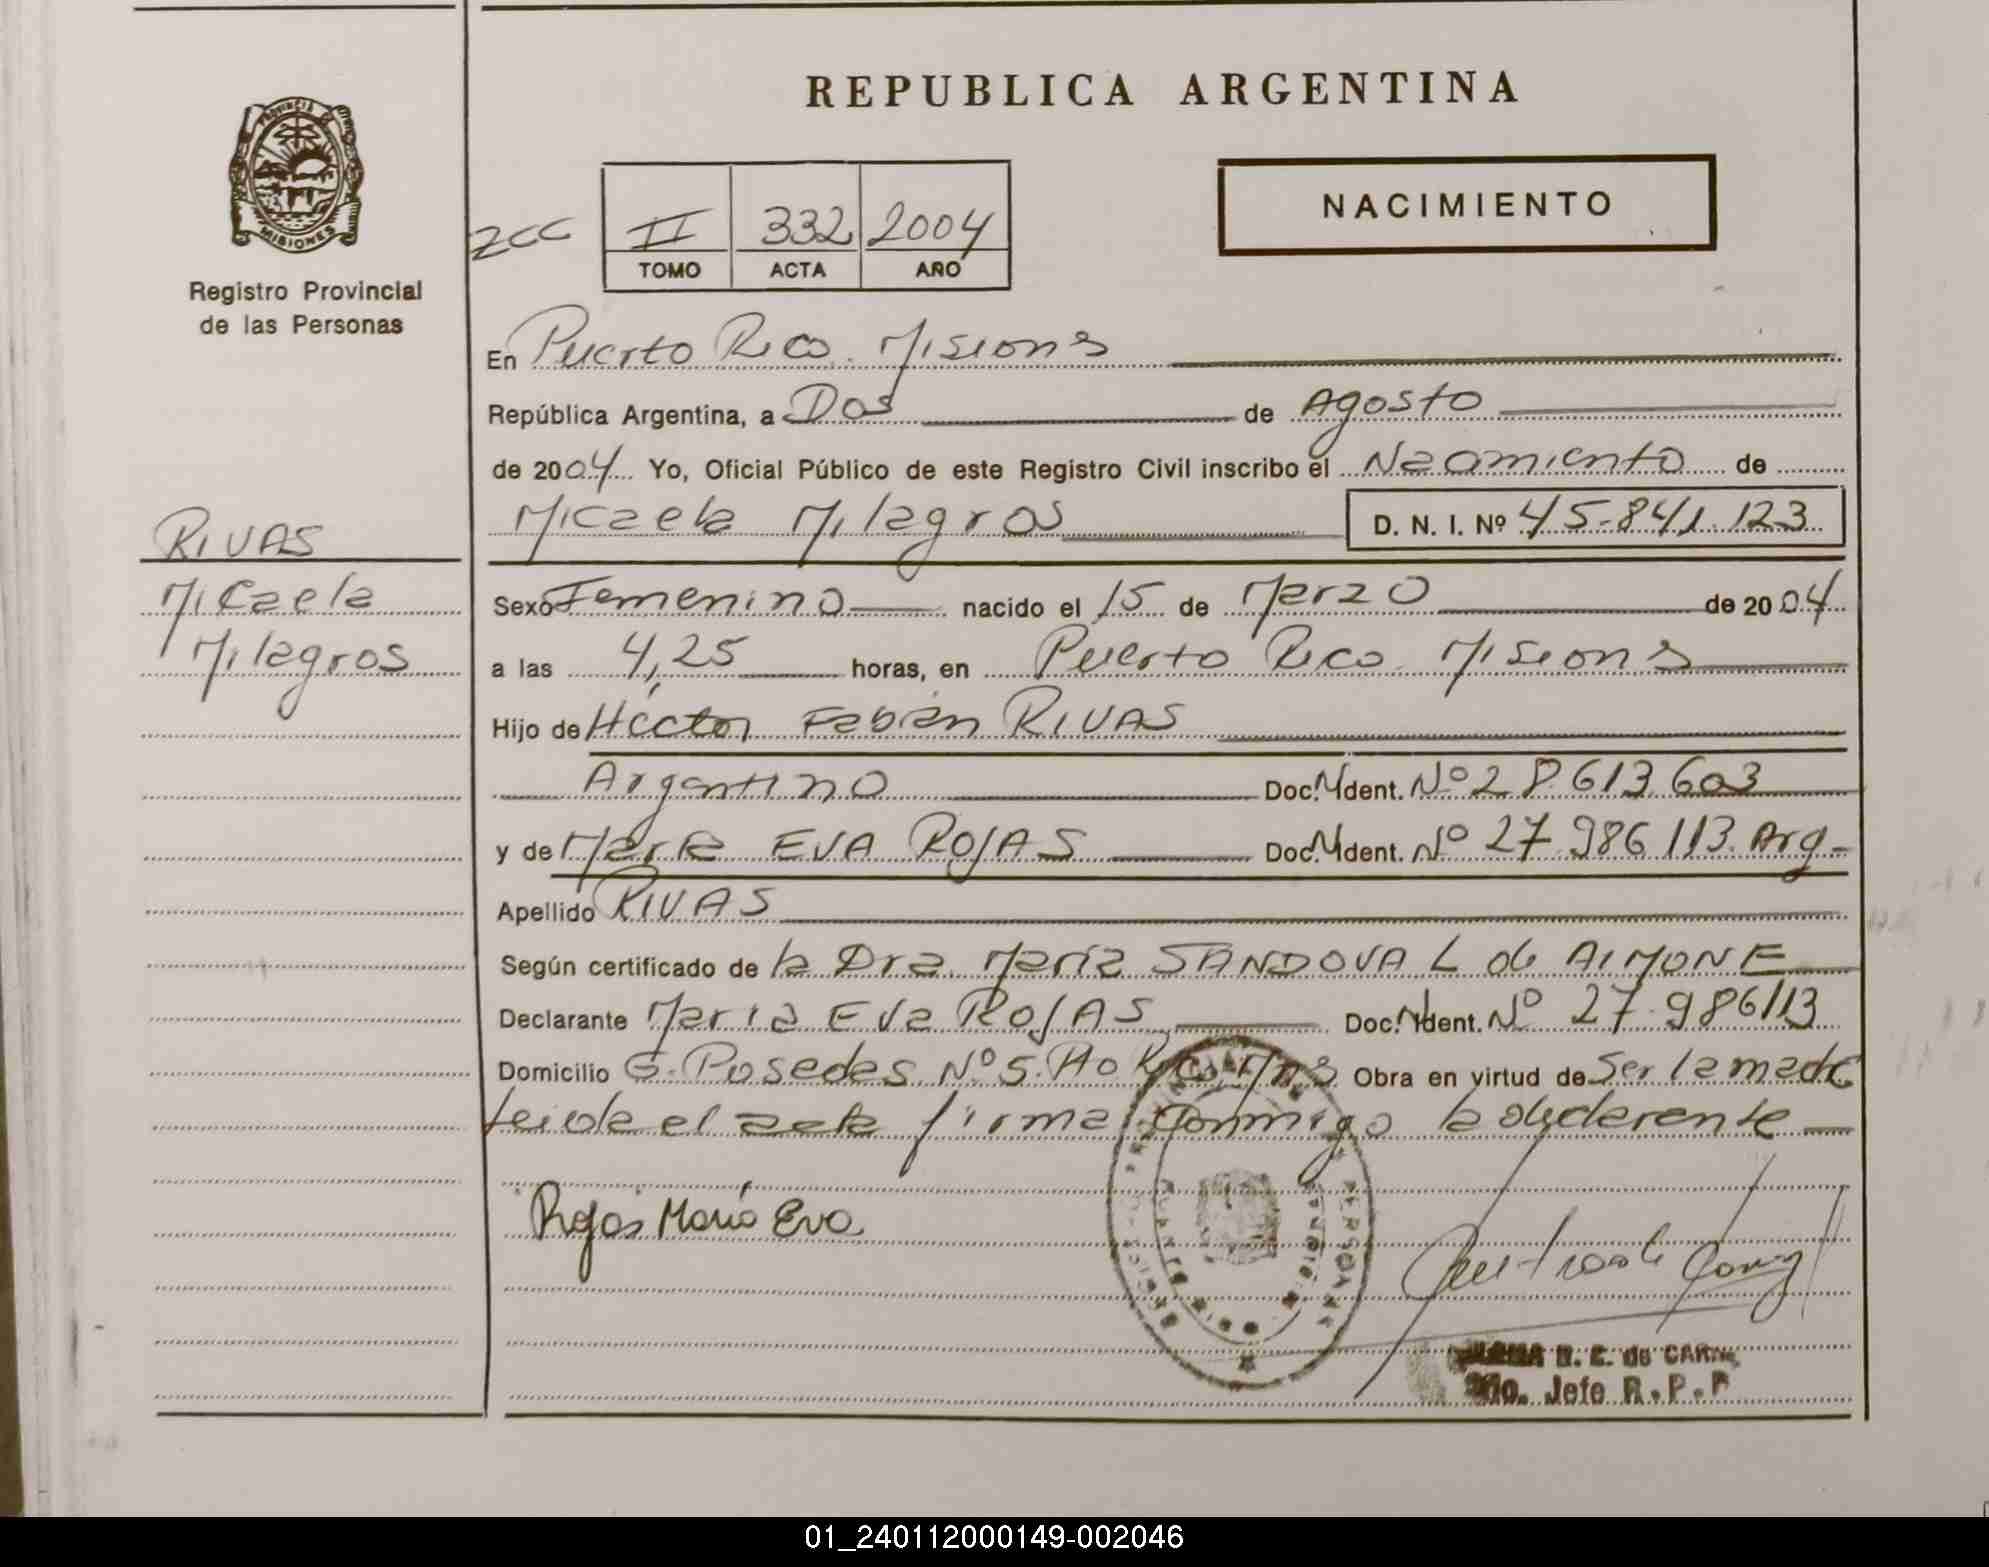 REPUBLICA ARGENTINA
PROVINCIA DE
MISIONES
Registro Provincial
de las Personas
NACIMIENTO
II 332 2004
TOMO ACTA AÑO
En Puerto Rico. Misiones
República Argentina, a Dos de Agosto
de 2004 Yo, Oficial Público de este Registro Civil inscribo el Nacimiento de
Micaela Milagros D. N. I. Nº 45.841.123
RIVAS
Micaela
Milagros
Sexo Femenino nacido el 15 de Marzo de 2004
a las 4,25 horas, en Puerto Rico. Misiones
Hijo de Héctor Fabián RIVAS
Argentino Doc. Ident. Nº 28.613.603
y de María EVA ROJAS Doc. Ident. Nº 27.986113. Arg-
Apellido RIVAS
Según certificado de la Dra. María SANDOVAL de AIMONE
Declarante María Eva ROJAS Doc. Ident. Nº 27.986113
Domicilio G. Posadas Nº 5. Pto Rico Mns Obra en virtud de Ser la madre
leida el acta firma conmigo la declarante
Rojas María Eva
R. E. de
Jefe R.P.P
01_240112000149-002046